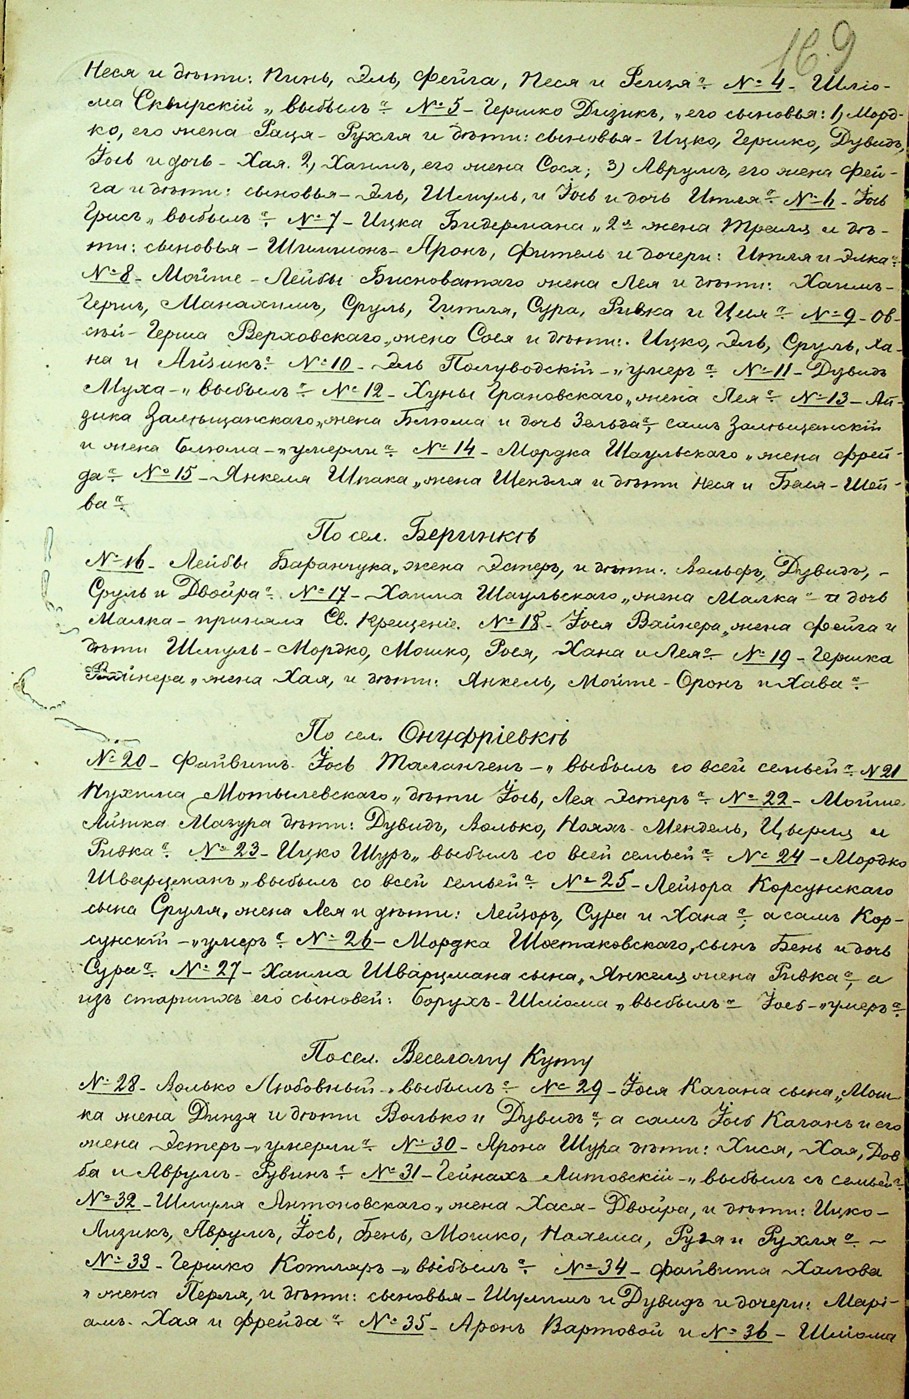 169
Неся и дѣти: Пинь, Эль, Фейга, Неся и Рейзя“. № 4 - Шлiо-
ма Сквирскiй „ выбылъ“. № 5 - Гершко Дизикъ, „ его сыновья: 1) Морд-
ко, его жена Рация - Рухля и дѣти: сыновья - Ицко, Гершко, Дувидъ,
Iось и дочь - Хая. 2) Хаимъ, его жена Сося; 3) Аврумъ, его жена Фей-
га и дѣти: сыновья - Эль, Шмуль, и Iось и дочь Итля“. № 6 - Iось
Грисъ „ выбылъ“. № 7 - Ицка Бидермана „ 2я жена Трейля и дѣ-
ти: сыновья - Шимшонъ - Аронъ, Фитель и дочери: Итля и Элка“.
№ 8 - Мойше - Лейбы Бисноватаго жена Лея и дѣти: Хаимъ -
Гершъ, Манахимъ, Сруль, Гитля, Сура, Ривка и Ципя“. № 9 - Ов-
сѣй - Герша Верховскаго „жена Сося и дѣти: Ицко, Эль, Сруль, Ха-
на и Айзикъ“. № 10 - Эль Полуводскiй - „ умеръ“. № 11 - Дувидъ
Муха - „ выбылъ“. № 12 - Хуны Грановскаго „жена Лея“. № 13 - Ай-
зика Залѣщанскаго „жена Блюма и дочь Зельда“, самъ Залѣщанскiй
и жена Блюма - „умерли“. № 14 - Мордка Шаульскаго „ жена Фрей-
да“. № 15 - Янкеля Шпака „жена Шендля и дѣти Неся и Бася - Шей-
ва“.
По сел. Беринкѣ
№ 16 - Лейбы Баранчука „жена Эстеръ, и дѣти: Вольфъ, Дувидъ, -
Сруль и Двойра“. № 17 - Хаима Шаульскаго „жена Малка“ а дочь
Малка - приняла Св. Крещенiе. № 18 - Iося Вайнера „жена Фейга и
дѣти Шмуль - Мордко, Мошко, Рося, Хана и Лея“. № 19 - Гершка
Вайнера „ жена Хая, и дѣти: Янкель, Мойше - Оронъ и Хава“.
По сел. Онуфрiевкѣ
№ 20 - Файвишъ Iось Таланченъ - „ выбылъ со всей семьей“. № 21
Нухима Мотылевскаго „ дѣти Iось, Лея Эстеръ“. № 22 - Мойше
Айзика Мазура дѣти: Дувидъ, Волько, Нояхъ - Мендель, Цырля и
Ривка“. № 23 - Ицко Шуръ „ выбылъ со всей семьей“. № 24 - Мордко
Шварцманъ „ выбылъ со всей семьей“. № 25 - Лейзора Корсунскаго
сына Сруля „жена Лея и дѣти: Лейзоръ, Сура и Хана“, а самъ Кор-
сунскiй - „умеръ“. № 26 - Мордка Шостаковскаго „сынъ Бень и дочь
Сура“. № 27 - Хаима Шварцмана сына „ Янкеля жена Ривка“, а
изъ старшихъ его сыновей: Борухъ - Шлiома „ выбылъ“ Iось - „умеръ“.
По сел. Веселому Куту
№ 28 - Волько Любовный - „выбылъ“. № 29 - Iося Кагана сына „ Мош-
ка жена Динзя и дѣти Волько и Дувидъ“, а самъ Iось Каганъ и его
жена Эстеръ - „умерли“. № 30 - Арона Шура дѣти: Хися, Хая, Дов
ба и Аврумъ - Рувинъ“. № 31 - Гейнахъ Литовскiй - „ выбылъ съ семьей“.
№ 32 - Шмиля Антоновскаго „жена Хася - Двойра, и дѣти: Ицко -
Лизикъ, Аврумъ, Iось, Бень, Мошко, Нахема, Рузя и Рухля“. ~
№ 33 - Гершко Котляръ - „ выбылъ“. № 34 - Файвиша Халова
„ жена Перля, и дѣти: сыновья - Шулимъ и Дувидъ и дочери: Марi-
амъ - Хая и Фрейда“. № 35 - Аронъ Вартовой и № 36 - Шлiома